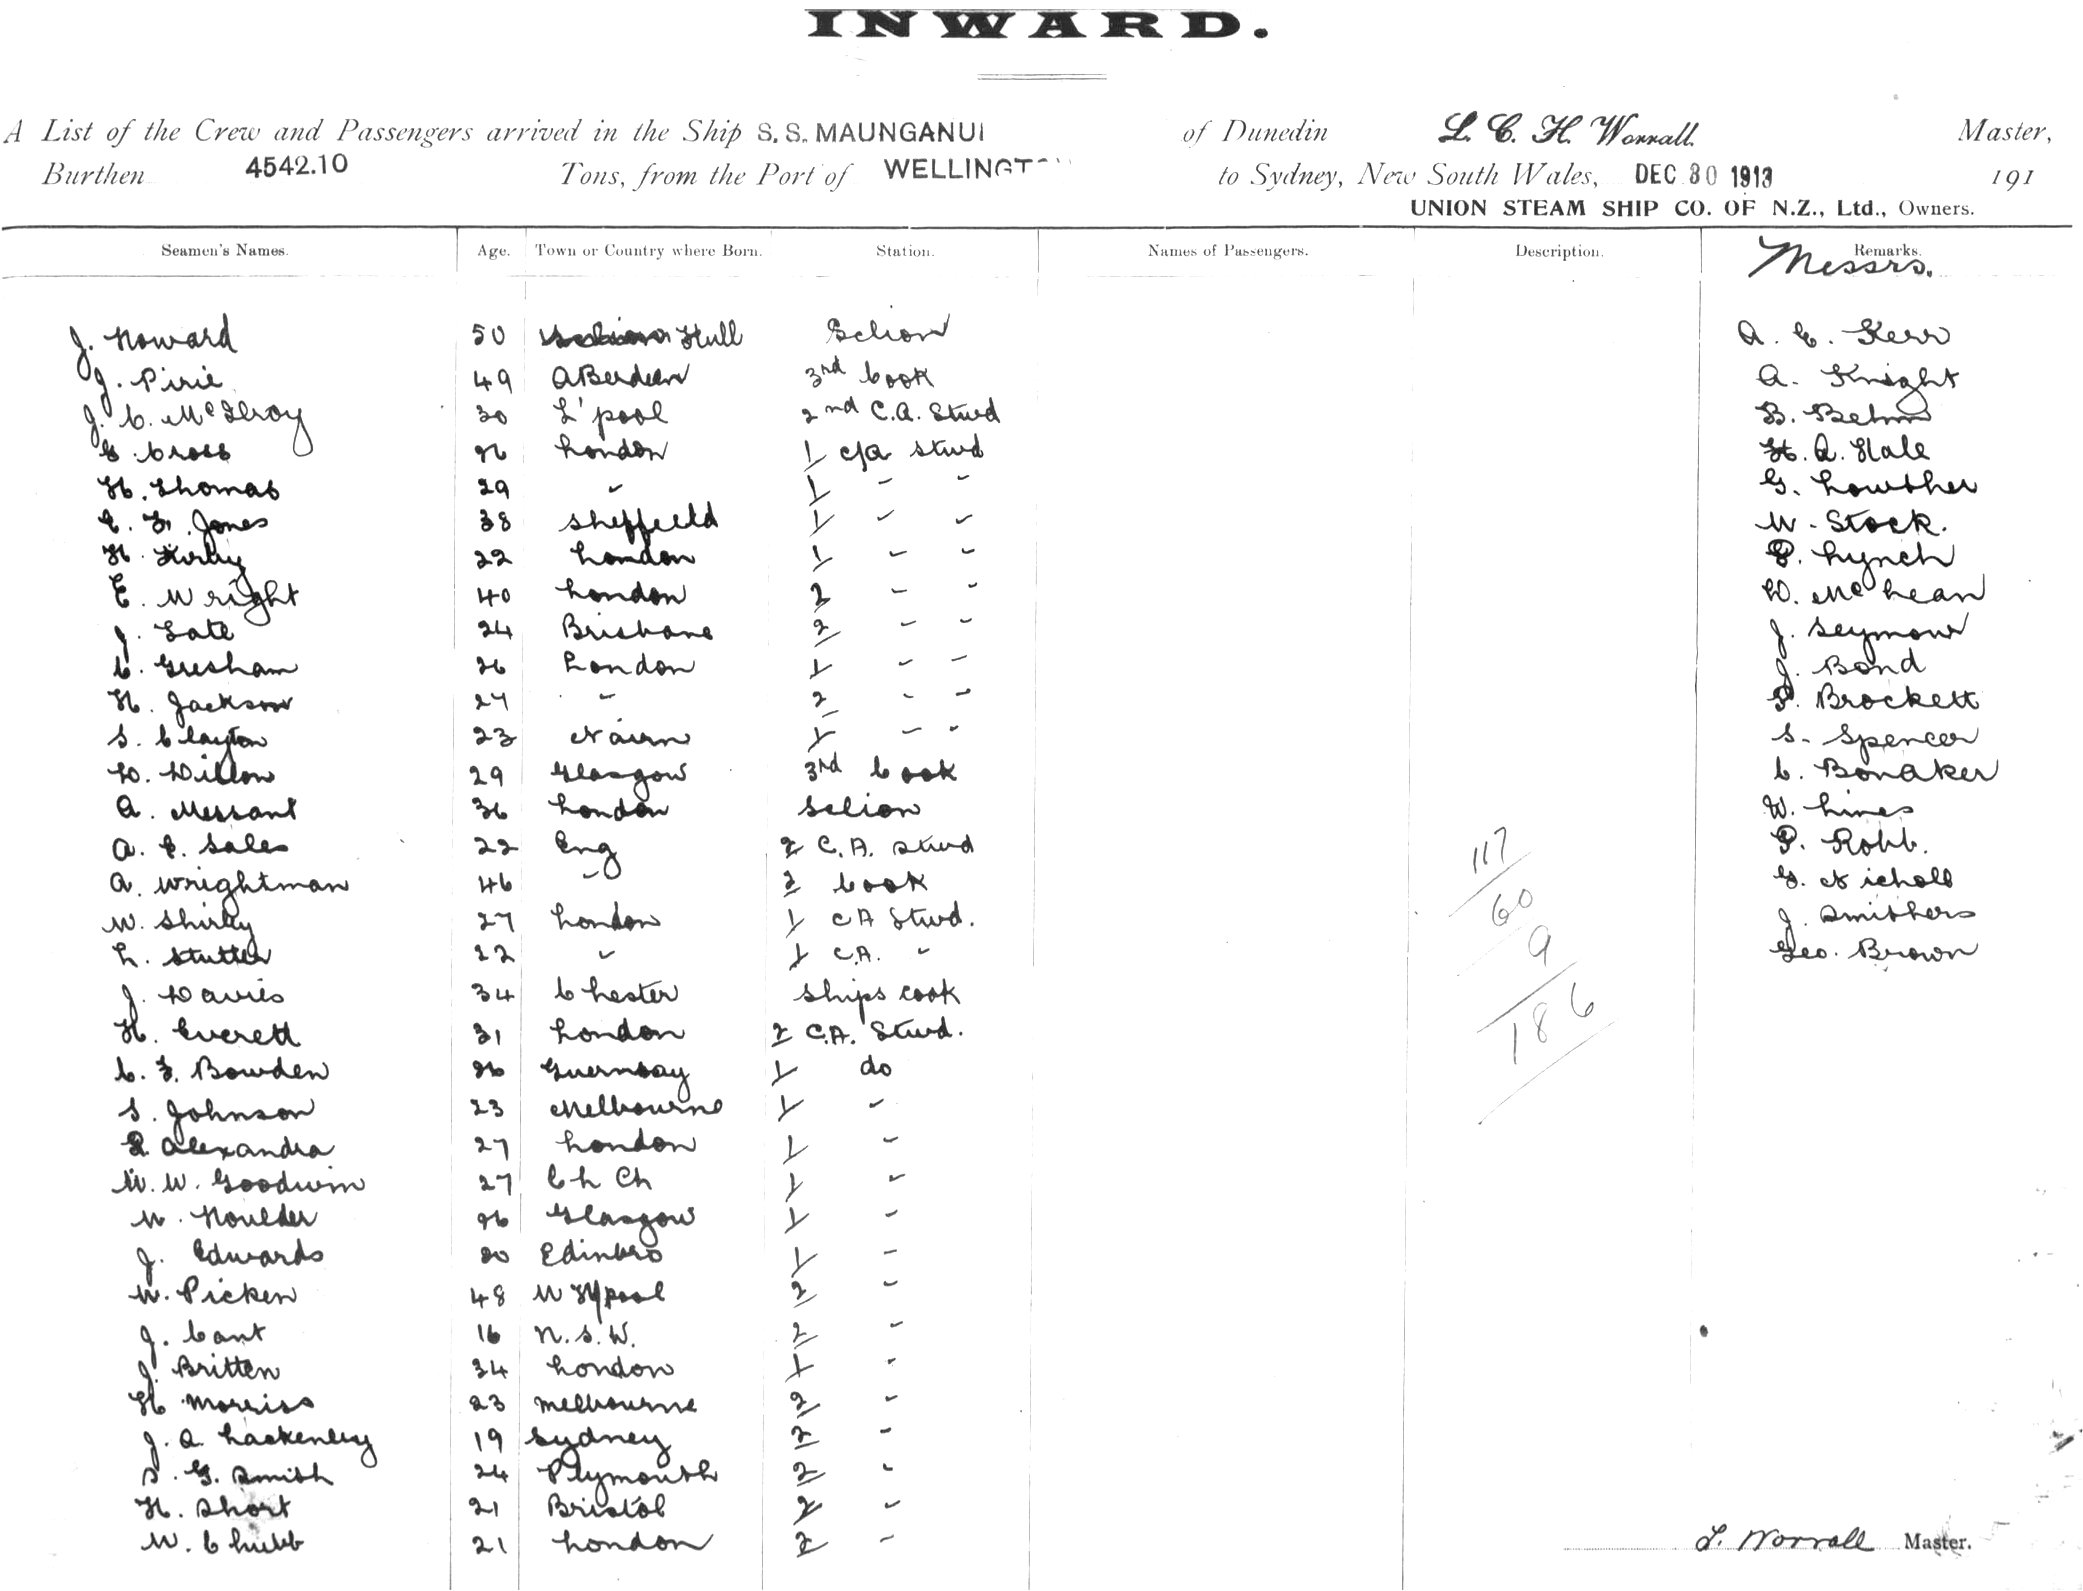 INWARD.
A List of the Crew and Passengers arrived in the Ship S.S. MAUNGANUI of Dunedin L. C. H. Worrall. Master,
Burthen 4542.10 Tons, from the Port of WELLINGTON to Sydney, New South Wales, DEC 30 1913 191
UNION STEAM SHIP CO. OF N.Z., Ltd., Owners.
Seamen's Names. Age. Town or Country where Born. Station. Names of Passengers. Description. Remarks.
Messrs.
J. Howard 50 Hull A. E. Kerr
J. Pirie 49 ABerdeen 3rd Cook A. Knight
J. C. McIlroy 30 L'pool 2nd C.A. Stwd B. Behm
G. Cross 26 London 1 c/a stwd H. A. Hale
H. Thomas 29 " 1 " " G. Lowther
E. F. Jones 38 Sheffield 1 " " W. Stock.
H. Kirby 22 London 1 " " P. Lynch
E. Wright 40 London 2 " " D. McLean
J. Tate 24 Brisbane 2 " " J. Seymour
C. Gresham 26 London 1 " " J. Bond
H. Jackson 27 " 2 " " P. Brockett
S. Clayton 23 Nairn 1 " " S. Spencer
D. Dillon 29 Glasgow 3rd Cook C. Bonaker
A. Messant 36 London W. Lines
A. E. Sales 22 Eng 2 C.A. Stwd P. Robb.
A. Wrightman 46 " 2 Cook G. Nicholl
W. Shirley 27 London 1 CA Stwd. J. Smithers
L. Stutter 22 " 1 C.A. " Geo. Brown
J. Davies 34 Chester Ships cook
H. Everett 31 London 2 C.A. Stwd.
C. F. Bowden 26 Guernsay 1 do
S. Johnson 23 Melbourne 1 "
P. Alexandra 27 London 1 "
W. W. Goodwin 27 Ch Ch 1 "
W. Houlder 26 Glasgow 1 "
J. Edwards 20 Edinbro 1 "
W. Picken 48 W H'pool 2 "
J. Cant 16 N.S.W. 2 "
J. Britten 34 London 1 "
H Morriss 23 Melbourne 2 "
J. A. Lackenby 19 Sydney 2 "
S. G. Smith 24 Plymouth 2 "
H. Short 21 Bristol 2 "
W. Chubb 21 London 2 "
117
60
9
186
L. Worrall Master.